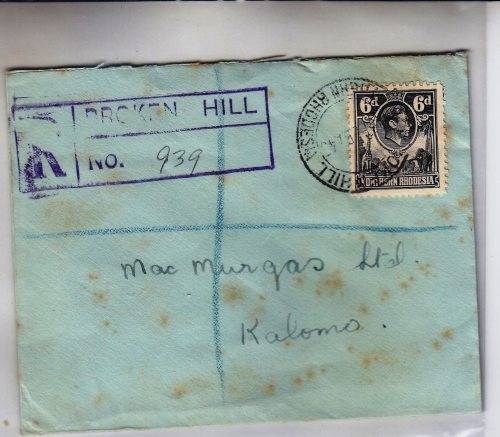 R BROKEN HILL
NO. 939
6d 6d
NORTHERN RHODESIA
HILL N RHODESIA
Mac Murgas Ltd.
Kalomo.